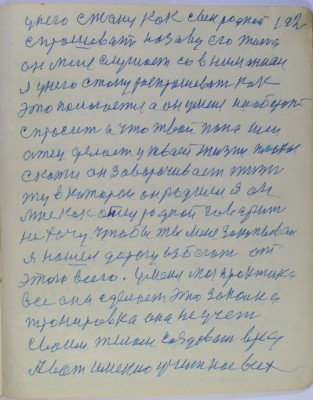 у него стану как свекродной 192
спрошевать назову его папа
он меня слушает со вниманием
я у него стану распрошевать как
это полагается а он у меня наоборот
спросит а что твой папа или
отец делает у твоей жизни
скажи он заворачивает жизнь
ту в которой он родился я он
мне как отец родной говорит
не хочу чтобы ты мне
я нашел дорогу избегать от
этого всего. У меня моя практика
все она сделает это закалка
тренировка она не учет
своим телом создовать вред
А вот именно учит нас всех